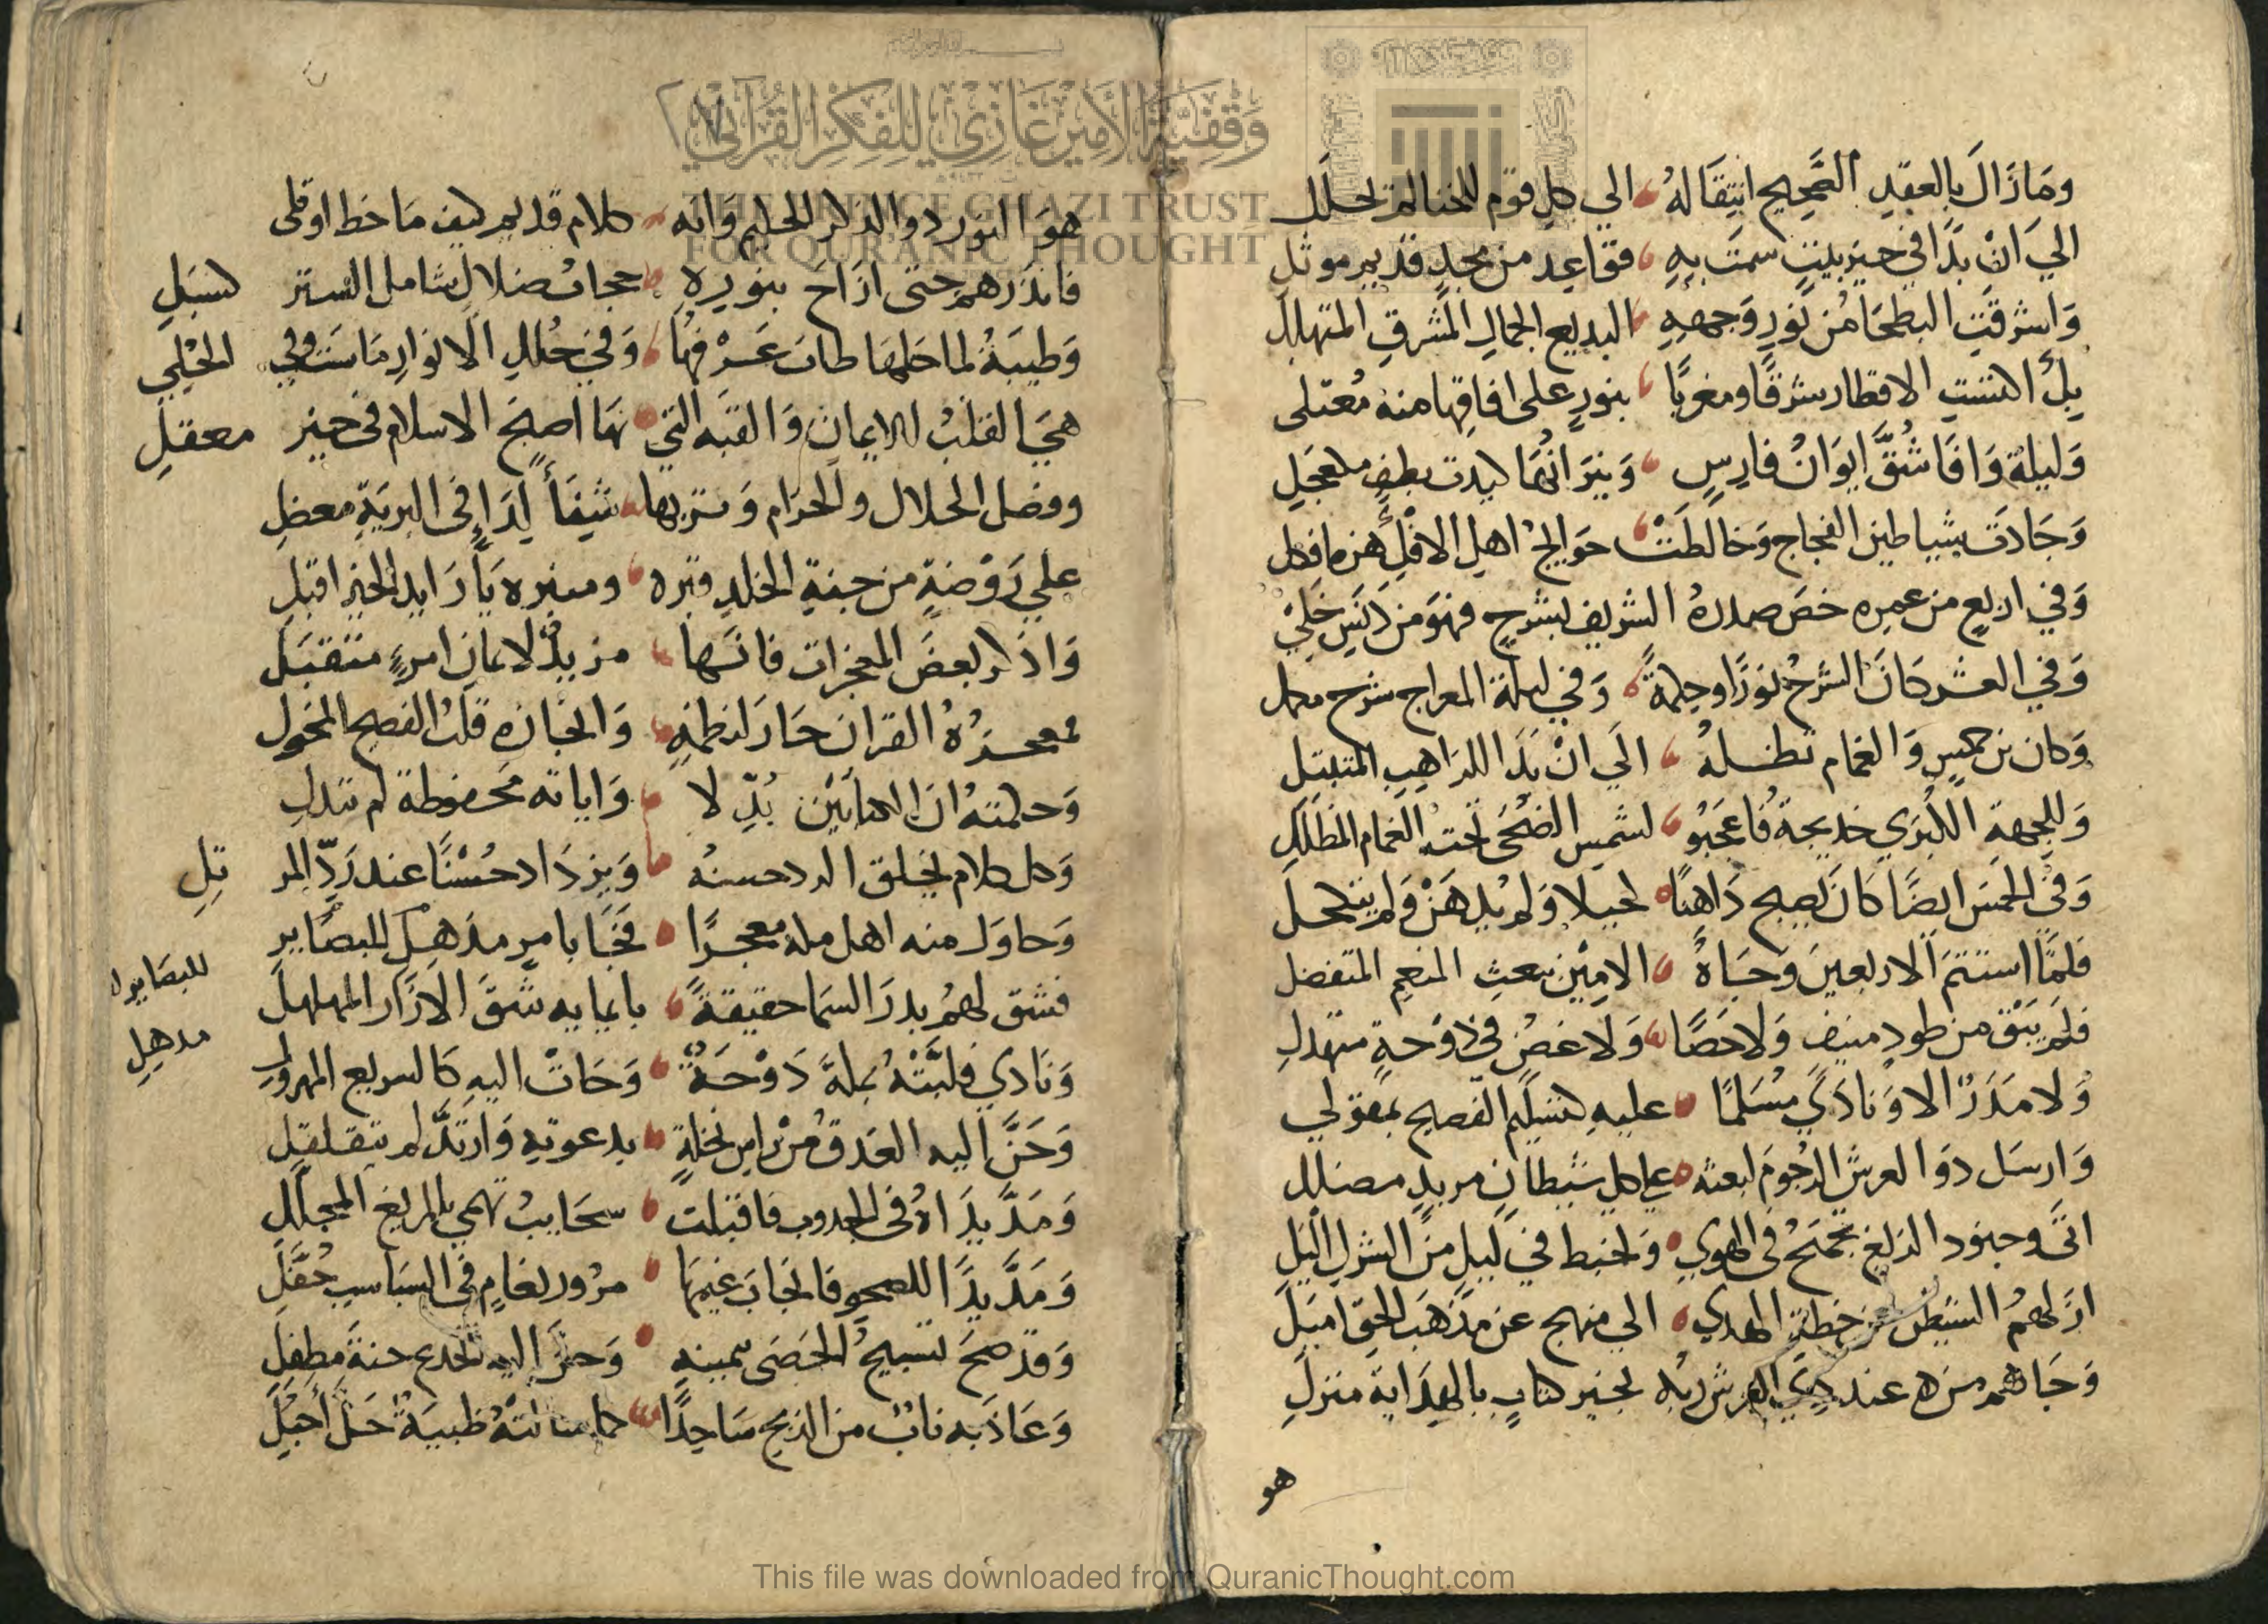 ومَازَالَ بالعقدِ الصَّحِيحِ انتِقَالهُ الي كل قوم للخنا لم تحلَّل
الي اَنْ بدَا في خيرِ بيتٍ سمَت بهِ قواعد من مجدٍ قديم موثل
وَاشرقَتِ البطحَا من نورِ وَجههِ البديع الجمالِ المشرقِ المتهلل
بل اكتستِ الاقطار شرقًا ومغربًا بنورٍ على افاقِها منه مُعتلى
وَليلة وَافَا شُقَّ اِيوَانُ فارِسٍ وَنيرَانُهَا كيدت بطفٍ معجَلِ
وَجَادَت شياطين الفجاج وَخالطَتْ حوَايج اهلِ الافك
وَفي اربعٍ من عمرِه خصَ صدرهُ الشريف بشرحٍ فهوَ من دَنَسٍ خَلِيْ
وَفي العشر كَانَ الشرحُ نورًا وحِكمةً وَفي ليلة المعراج شرح مكمل
وَكان بن خمسٍ وَالغمام تظلهُ الَي انْ بدَا للرَاهِبِ المتبتل
وَللجهةِ الكُبرَي خديجة فاعجَبُو لشمسِ الضُحَى تحتَ الغمام المظلل
وَفي الخمس ايضًا كَانَ يصبح دَاهِنًا كحيلا وَلم يدهَنْ وَلم يتكحل
فلمَّا استتمَ الاربعينَ وَحبَاهُ الامِيْن ببعثِ المنعم المتفضل
فلم يَبْق من طودٍ منيف وَلا حَصًا وَلا غصن في دَوْحةٍ متهدل
وَلا مَدَرٌ الا وَنادَي مُسَلمًا عليهِ كتسليم الفصيح بمقولي
وَارسَل ذو العرش الرجُومَ لبعثه على كل شيطانٍ مريدٍ مضلل
اتَي وجنود الزيغ تجمَحُ في الهوي وَتخبط في ليلٍ من الشركِ الْيَل
ازلهمُ الشيطن عن خطةِ الهدي الي منهج عن مَذهَبِ الحق اميَل
وَجَاهم من عند ذي العرش ربه بخير كتابٍ بالهدَاية منزلِ
هو
هوَ النور والذكر الحكيم وَانه كلام قديم كيف مَا خط اوتلى
فانذرَهم حتى ازَاحَ بنورِهِ حجابْ ضلالٍ شامل الستر كسبَلِ
وَطيبَةُ لما حَلهَا طابَ عَرْفهُا وَفي حُلل الانوارِ مَاسَت وفي الحُلِيِ
هيَ القلبُ للايمان وَالقبَه التي بهَا اصبحَ الاسلام في خير معقلِ
وفضل الحلال والحرام وَتربها شِفَأٌ لِدَاءٍ في البريَةِ معضلِ
علي رَوْضَةٍ من جنةِ الخلدِ قبره ومنبره يَا رَايد الخير اقبلِ
وَاذكر بعضَ المعجزات فانَها مزيدٌ لايمانِ امرءٍ متقبَل
فمعجزُهُ القران حَارَ لنظمِهِ وَايجازهِ قلب الفصيح المخول
وَحكمتهُ انَ الكتابَيْن بُدِّلا وَاياته محفوظة لم تبدل
وَكل كلام يخلق الرد حسنهُ وَيزدَاد حُسْنًا عند رَدِّ المر تِلِ
وَحاوَل منه اهل مكة معجزًا فجَا بامرٍ مذهِل للبصَايرِ
للبصَايرِ
مدهِلِ
فشق لهُم بدرَ السمَا حقيقةً بايمايه شَقَ الازَار المهلهلَ
وَنَادي فلبَّتْهُ بمكة دَوْحَةٌ وَجَاتْ اليه كَالسريع المهرول
وَحَنَّ اليه العذق من رَاسِ نخلةٍ بدعوتهِ وَارتدَّ لم يتقلقلِ
وَمَدَّ يدَاهُ في الجدوب فاقبلت سحَايبُ تهمي بالمريع المجلل
وَمَدَّ يدًا للصحوِ فانجابَ غيمهَا مرُور نعامٍ في السبَاسب جُفَّلِ
وَقد صحَ تسبيحُ الحَصَى بيمينهِ وَحنَّ اليه الجذع حنةَ مطفِلِ
وَعَاذَ به نابٌ من الذبح سَاجدًا كما انتهُ ظبيَةٌ حَلُ اَحبُلِ
This file was downloaded from QuranicThought.com
وَقْفِيَّةُ الأَمِيرِ غَازِي لِلفِكْرِ القُرْآنِيّ
THE PRINCE GHAZI TRUST
FOR QUR'ANIC THOUGHT